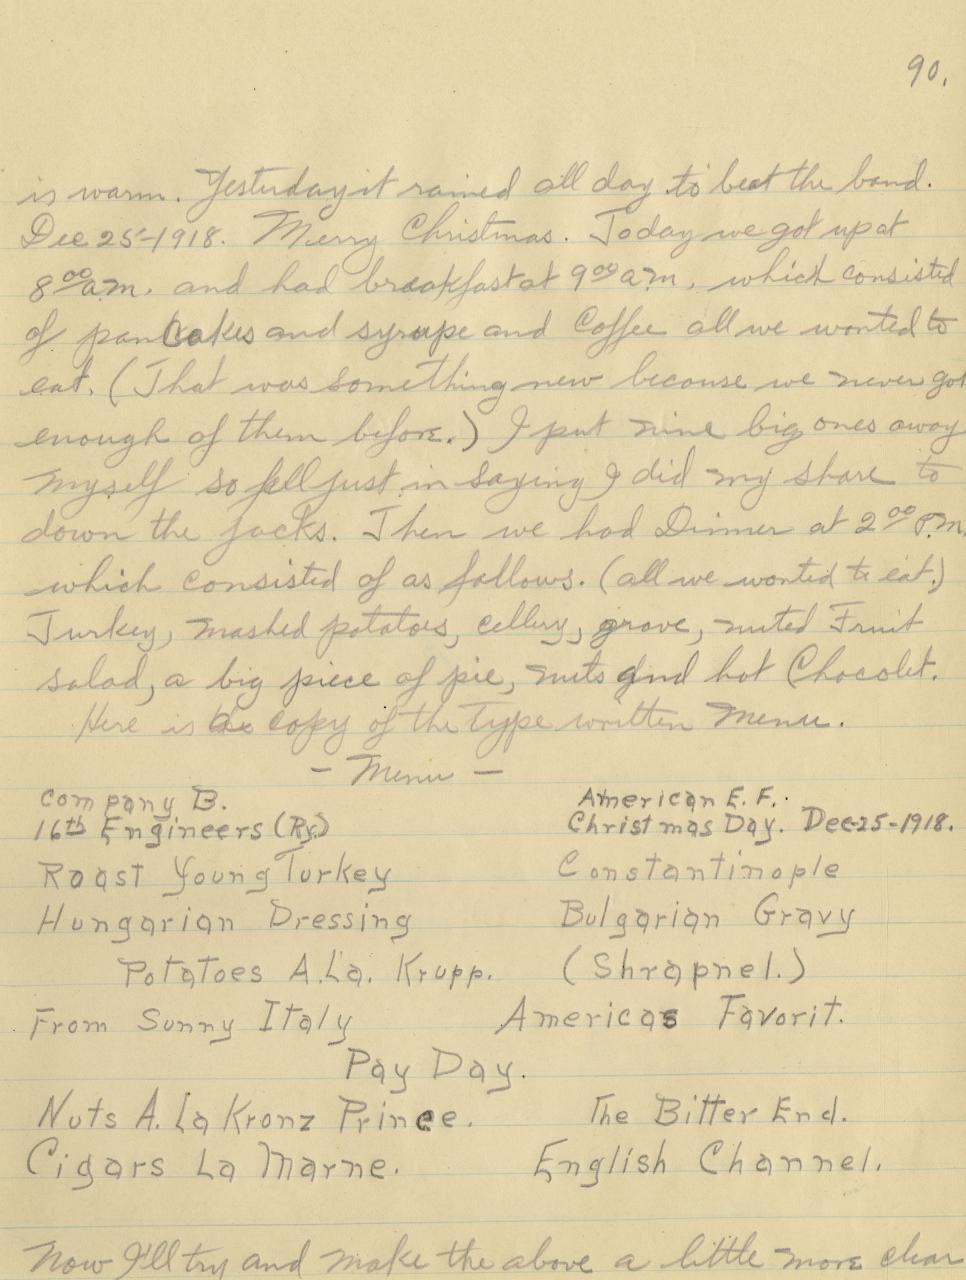 90.
is warm. Yesturday it rained all day to beat the band.
Dec 25-1918. Merry Christmas. Today we got up at
8 00 a.m. and had breakfast at 9 00 a.m. which consisted
of pancakes and syrupe and Coffee all we wanted to
eat. (That was something new because we never got
enough of them before.) I put nine big ones away
myself so fell just in saying I did my share to
down the jacks. Then we had Dinner at 2 00 P.m.
which consisted of as follows. (all we wonted to eat.)
Turkey, mashed potatoes, cellery, grave, muted Fruit
salad, a big piece of pie, nuts and hot Chocolet.
Here is the copy of the Type written Menu.
- Menu -
Company B. American E. F.
16th Engineers (Ry.) Christmas Day. Dec-25-1918.
Roast Young Turkey Constantinople
Hungarian Dressing Bulgarian Gravy
Potatoes A.La. Krupp. (Shrapnel.)
From Sunny Italy Americas Favorit.
Pay Day.
Nuts A. La Kronz Prince. The Bitter End.
Cigars La Marne. English Channel.
Now I'll try and make the above a little more clear